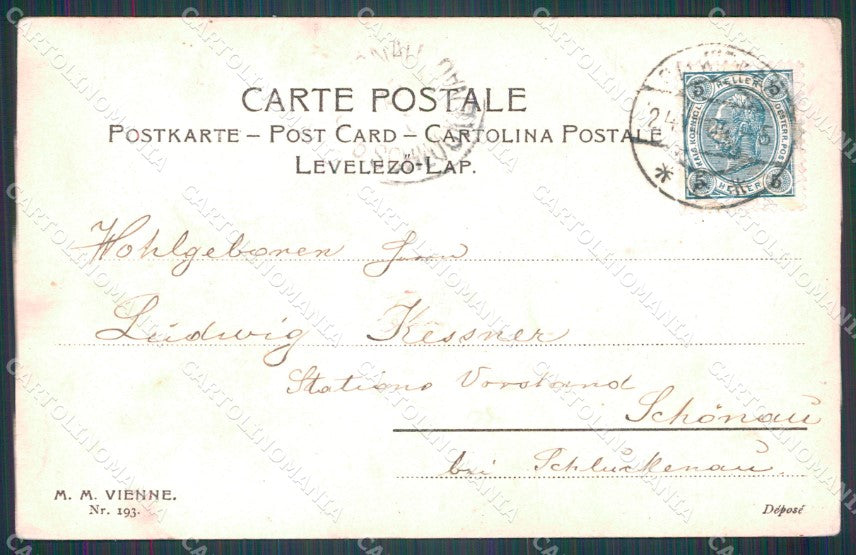 CARTE POSTALE
POSTKARTE – POST CARD – CARTOLINA POSTALE
LEVELEZŐ-LAP.
5 HELLER 5
KAIS. KOENIGL. OESTERR. POST
5 HELLER 5
24
Wohlgeboren Herrn
Ludwig Kessner
Stations Vorstand
Schönau
bei Schluckenau.
M. M. VIENNE.
Nr. 193.
Déposé
CARTOLINOMANIA